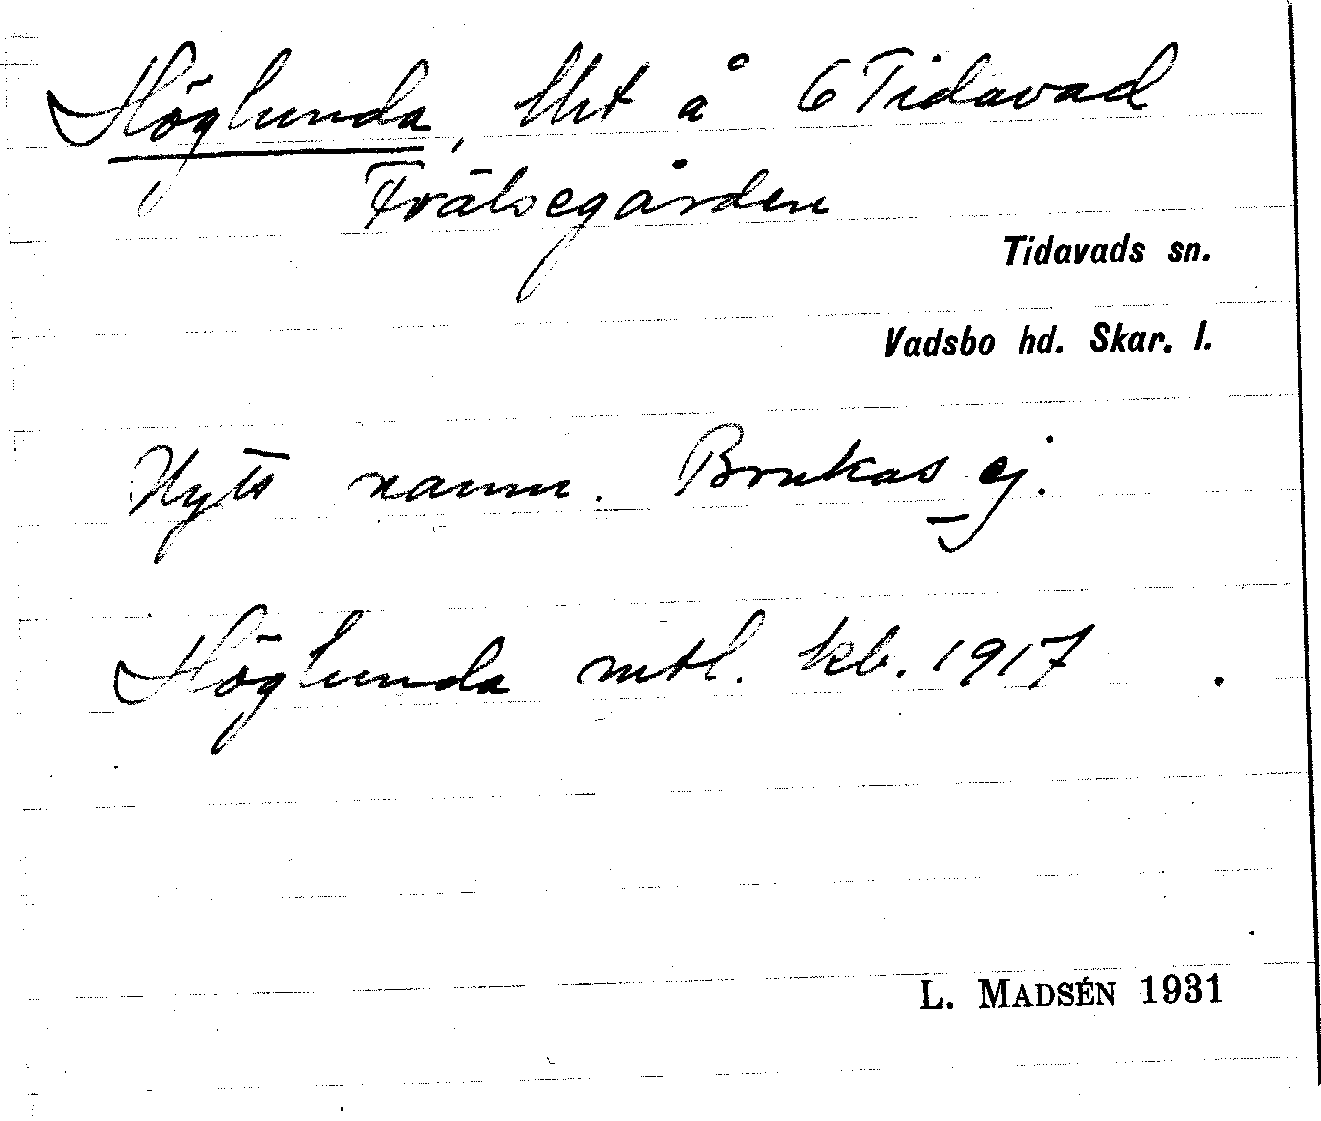 Höglunda, lht å 6 Tidavad
Frälsegården
Tidavads sn.
Vadsbo hd. Skar. l.
Nytt namn. Brukas ej.
Höglunda mtl. kb. 1917
L. MADSÉN 1931